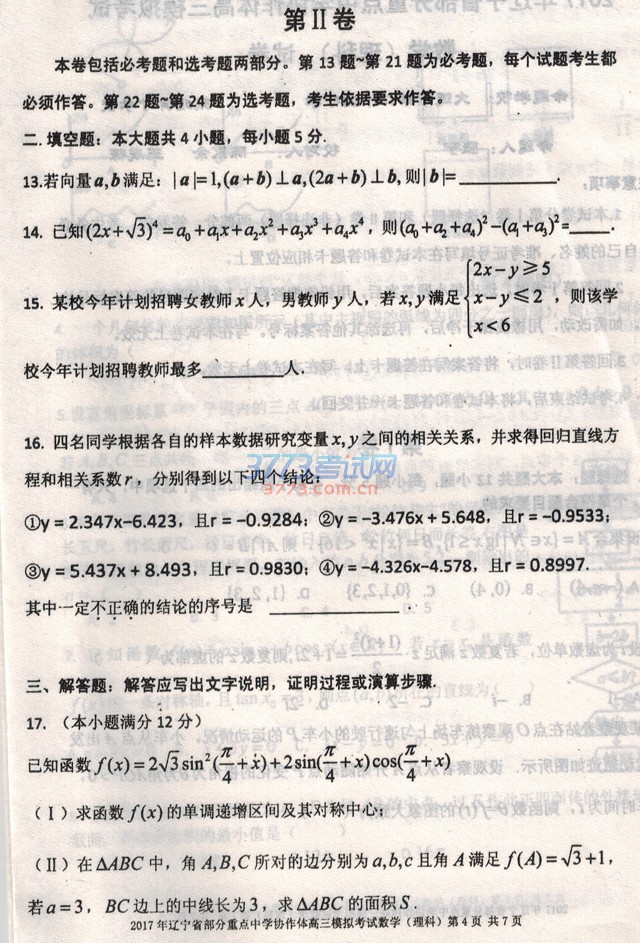 第Ⅱ卷
本卷包括必考题和选考题两部分。第 13 题~第 21 题为必考题，每个试题考生都
必须作答。第 22 题~第 24 题为选考题，考生依据要求作答。
二. 填空题：本大题共 4 小题，每小题 5 分.
13.若向量a,b满足：|a|=1,(a+b)⊥a,(2a+b)⊥b,则|b|=________.
14. 已知(2x+√3)⁴=a₀+a₁x+a₂x²+a₃x³+a₄x⁴，则(a₀+a₂+a₄)²−(a₁+a₃)²=____.
15. 某校今年计划招聘女教师 x 人，男教师 y 人，若 x,y 满足{2x−y≥5 x−y≤2 x<6，则该学
校今年计划招聘教师最多________人.
16. 四名同学根据各自的样本数据研究变量 x,y 之间的相关关系，并求得回归直线方
3773考试网
程和相关系数 r，分别得到以下四个结论：
3773.com.cn
①y = 2.347x−6.423，且r = −0.9284；②y = −3.476x + 5.648，且r = −0.9533；
③y = 5.437x + 8.493，且r = 0.9830；④y = −4.326x−4.578，且r = 0.8997.
其中一定不正确的结论的序号是 ____________
三、解答题：解答应写出文字说明，证明过程或演算步骤.
17. （本小题满分 12 分）
已知函数 f(x)=2√3sin²(π/4+x)+2sin(π/4+x)cos(π/4+x)
（Ⅰ）求函数 f(x) 的单调递增区间及其对称中心；
（Ⅱ）在ΔABC 中，角 A,B,C 所对的边分别为 a,b,c 且角 A 满足 f(A)=√3+1，
若 a=3，BC 边上的中线长为 3，求 ΔABC 的面积 S.
2017 年辽宁省部分重点中学协作体高三模拟考试数学（理科）第 4 页 共 7 页